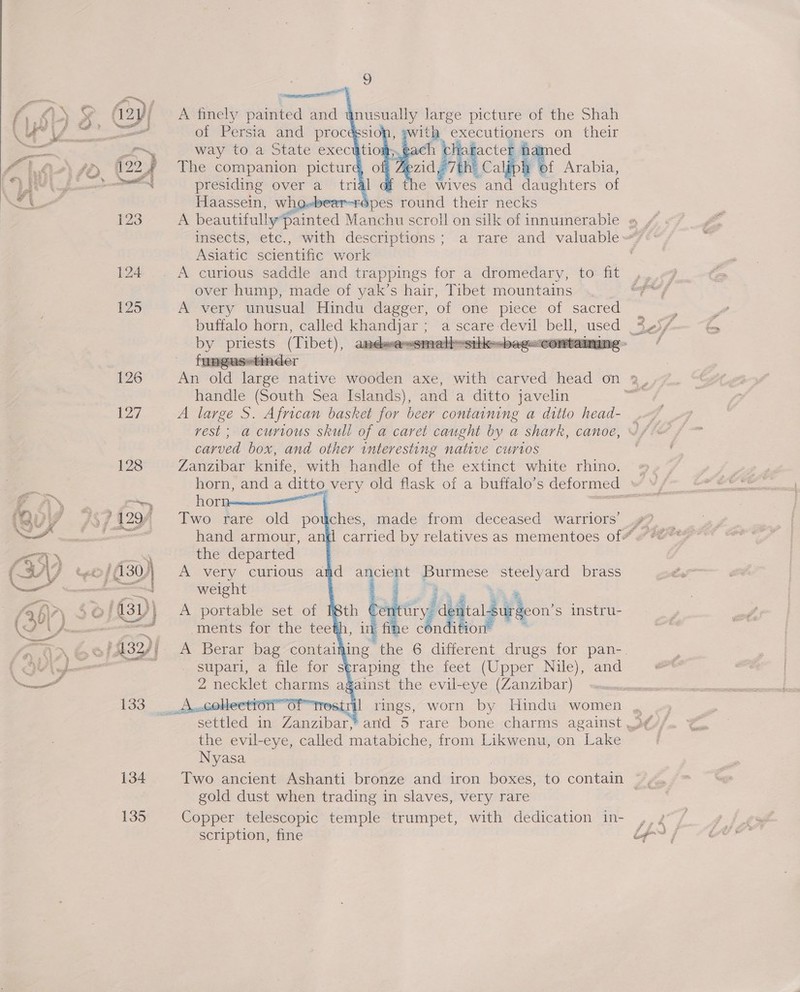 9
121 A finely painted and unusually large picture of the Shah
of Persia and procession, with executioners on their
way to a State execution, each character named
122 The companion picture, of Yezid, 7th Caliph of Arabia,
presiding over a trial of the wives and daughters of
Haassein, who bear ropes round their necks
123 A beautifully painted Manchu scroll on silk of innumerable
insects, etc., with descriptions ; a rare and valuable
Asiatic scientific work
124 A curious saddle and trappings for a dromedary, to fit
over hump, made of yak's hair, Tibet mountains
125 A very unusual Hindu dagger, of one piece of sacred
buffalo horn, called khandjar ; a scare devil bell, used
by priests (Tibet), and a small silk bag containing
fungus tinder
126 An old large native wooden axe, with carved head on
handle (South Sea Islands), and a ditto javelin
127 A large S. African basket for beer containing a ditto head-
rest ; a curious skull of a caret caught by a shark, canoe,
carved box, and other interesting native curios
128 Zanzibar knife, with handle of the extinct white rhino.
horn, and a ditto very old flask of a buffalo's deformed
horn
129 Two rare old pouches, made from deceased warriors'
hand armour, and carried by relatives as mementoes of
the departed
130 A very curious and ancient Burmese steelyard brass
weight
131 A portable set of 18th Century dental-surgeon's instru-
ments for the teeth, in fine condition
132 A Berar bag containing the 6 different drugs for pan-
supari, a file for scraping the feet (Upper Nile), and
2 necklet charms against the evil-eye (Zanzibar)
133 A collection of nostril rings, worn by Hindu women
settled in Zanzibar, and 5 rare bone charms against
the evil-eye, called matabiche, from Likwenu, on Lake
Nyasa
134 Two ancient Ashanti bronze and iron boxes, to contain
gold dust when trading in slaves, very rare
135 Copper telescopic temple trumpet, with dedication in-
scription, fine